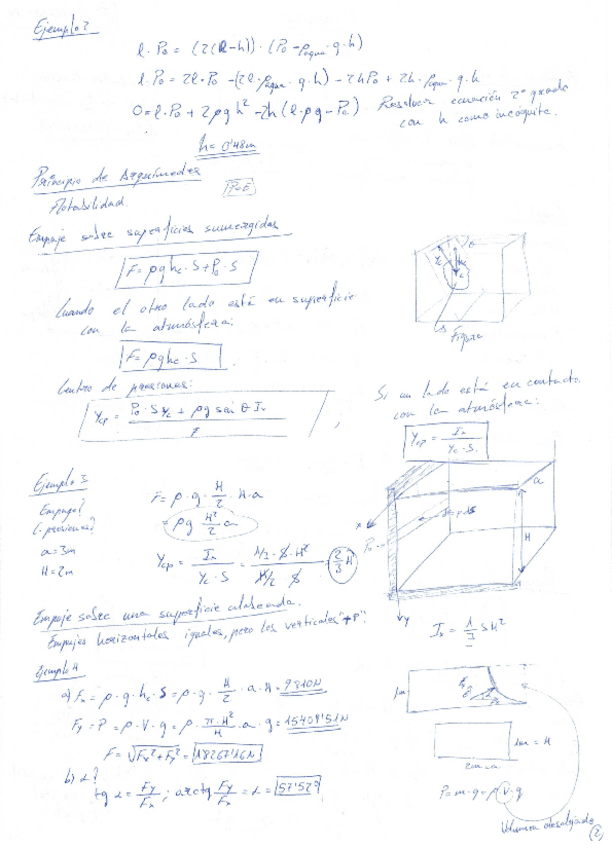 Ejemplo 2
l · P₀ = (2(l-h)) · (P₀ - ρagua · g · h)
l · P₀ = 2l · P₀ - (2l · ρagua · g · h) - 2hP₀ + 2h · ρagua · g · h
0 = l · P₀ + 2ρgh² - 2h (l · ρg - P₀) · Resolver ecuación 2º grado
con h como incógnita.
h = 0'48m
Principio de Arquímedes
P=E
Flotabilidad.
Empuje sobre superficies sumergidas
F = ρghc · S + P₀ · S
Cuando el otro lado está en superficie
con la atmósfera:
Figura
F = ρghc · S
Centro de presiones:
Si un lado está en contacto
con la atmósfera:
Ycp = P₀ · SYc + ρg sin θ Ix / F ;
Ycp = Ix / Yc · S
Ejemplo 3
Empuje?
C. presiones?
a = 3m
H = 2m
F = ρ · g · H/2 · H · a
= ρg H²/2 a
Ycp = Ix / Yc · S = 1/3 · S · H² / H/2 · S = 2/3 H
a
x
P₀
H
y
Ix = 1/3 SH²
Empuje sobre una superficie alabeada.
Empujes horizontales iguales, pero los verticales "+P".
Ejemplo 4
a) Fx = ρ · g · hc · S = ρ · g · H/2 · a · H = 9810N
Fy = P = ρ · V · g = ρ · π · H²/4 · a · g = 15409'51N
F = √Fx² + Fy² = 18267'16N
b) α?
tg α = Fy/Fx ; arctg Fy/Fx = α = 57'52º
1m
1m = H
2m = a
P = m · g = ρ · V · g
Volumen desalojado
2